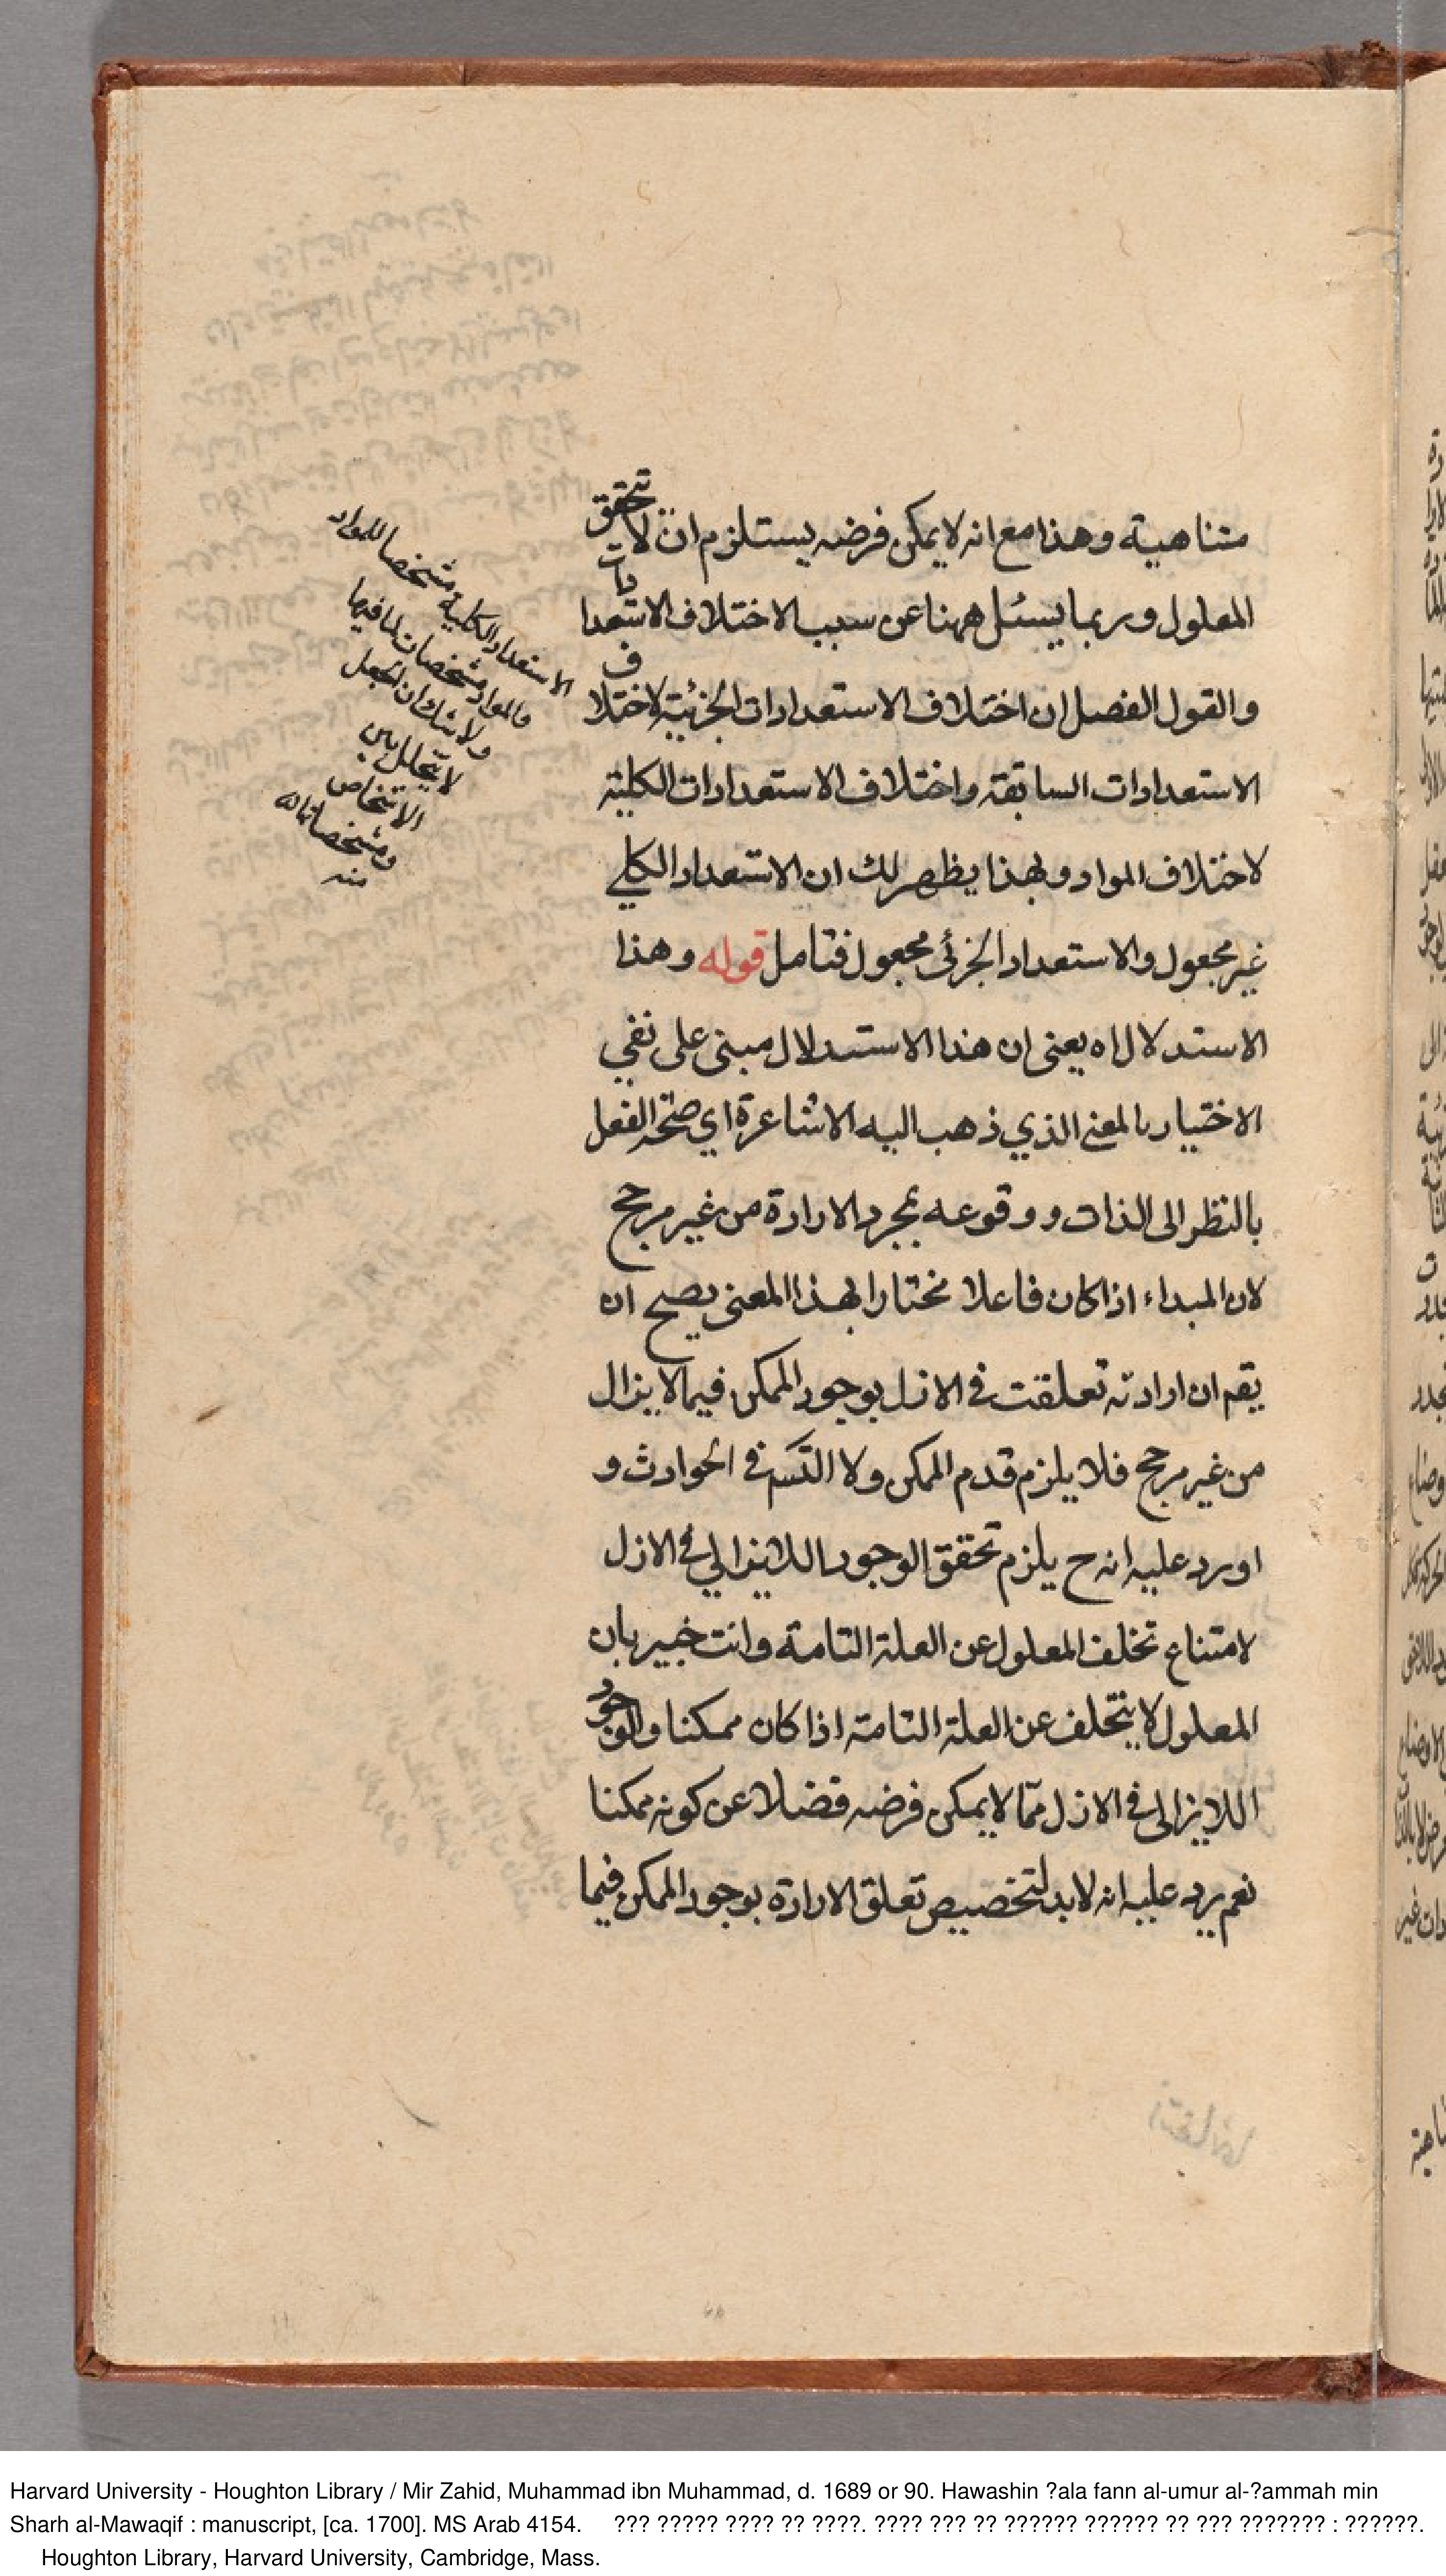 متناهية وهذا مع انه لا يمكن فرضه يستلزم ان لا يتحقق
المعلول وربما يسئل ههنا عن سبب الاختلاف الاستعدادات
والقول الفصل ان اختلاف الاستعدادات الجزئية لاختلاف
الاستعدادات السابقة واختلاف الاستعدادات الكلية
لاختلاف المواد وبهذا يظهر لك ان الاستعداد الكلي
غير مجعول والاستعداد الجزئى مجعول فتامل قوله وهذا
الاستدلال اه يعنى ان هذا الاستدلال مبنى على نفي
الاختيار بالمعنى الذي ذهب اليه الاشاعرة اي صحة الفعل
بالنظر الى الذات ووقوعه بمجرد الارادة من غير مرجح
لان المبداء اذا كان فاعلا مختارا بهذا المعنى يصح ان
يقم ان ارادته تعلقت في الازل بوجود الممكن فيما لا يزال
من غير مرجح فلا يلزم قدم الممكن ولا التس في الحوادث و
اورد عليه انه ح يلزم تحقق الوجود اللايزالي في الازل
لامتناع تخلف المعلول عن العلة التامة وانت خبير بان
المعلول لا يتخلف عن العلة التامة اذا كان ممكنا والوجود
اللايزالى في الازل مما لا يمكن فرضه فضلا عن كونه ممكنا
نعم يرد عليه انه لا بد لتخصيص تعلق الارادة بوجود الممكن فيما
الاستعداد الكلية مشخصا للمواد
والمواد مشخصات لما فيها
ولا شك ان الجعل
لا يتخلل بين
الاشخاص
ومشخصاتها
منه
Harvard University - Houghton Library / Mir Zahid, Muhammad ibn Muhammad, d. 1689 or 90. Hawashin ?ala fann al-umur al-?ammah min
Sharh al-Mawaqif : manuscript, [ca. 1700]. MS Arab 4154. ??? ????? ???? ?? ????. ???? ??? ?? ?????? ?????? ?? ??? ??????? : ??????.
Houghton Library, Harvard University, Cambridge, Mass.